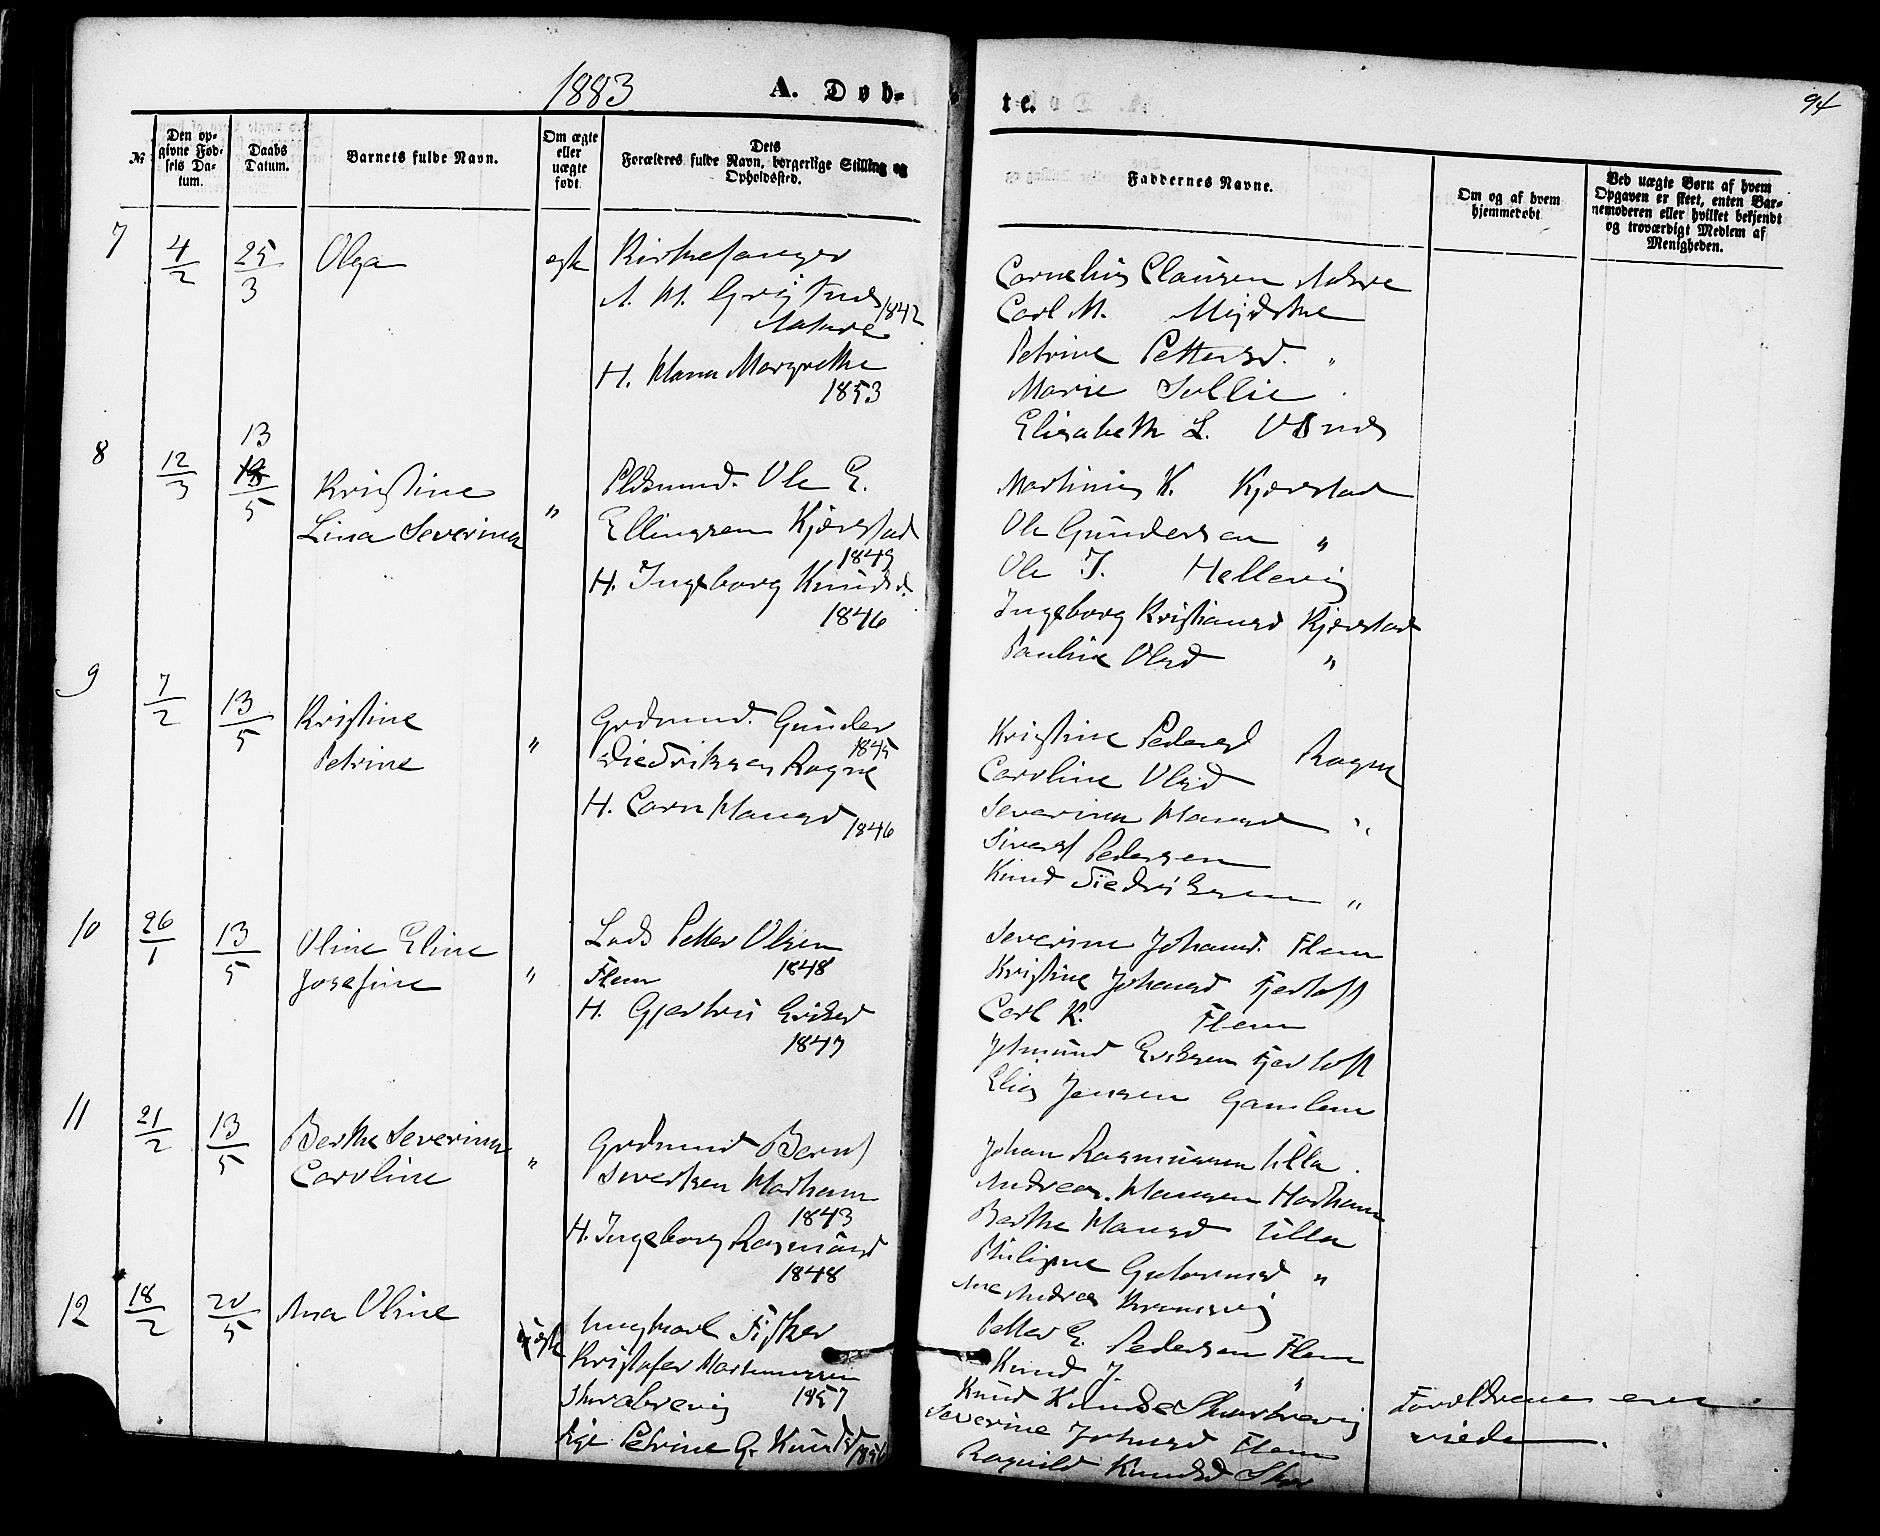 1883
A. Døb-
te.
94
№
Den op-
givne Fød-
sels Da-
tum.
Daabs
Datum.
Barnets fulde Navn.
Om ægte
eller
uægte
født.
Dets
Forældres fulde Navn, borgerlige Stilling og
Opholdssted.
Faddernes Navne.
Om og af hvem
hjemmedøbt
Ved uægte Børn af hvem
Opgaven er skeet, enten Bar-
nemoderen eller hvilket bekjendt
og troværdigt Medlem af
Menigheden.
7
4/2
25/3
Olga
egte
Kirkesanger
1842
H. Hana Margrethe
1853
Cornelius Clausen
Carl M.
Petrine Pettersd. "
Marie Sollie
Elisabeth L.
8
12/3
13
5
Kristine
Lina Severina
"
Ole E.
Ellingsen Kjærstad
1849
H. Ingeborg Knudsd.
1846
Martinus K. Kjærstad
Ole Gundersen "
Ole J. Hellevig
Ingeborg Kristiansd Kjærstad
Pauline Olsd "
9
7/2
13/5
Kristine
Petrine
"
Grdmand. Gunder
1845
Diedriksen Rogne
H. Hansd 1846
Kristine Pedersd Rogne
Caroline Olsd
Severina Hansd "
Sivert Pedersen
Knud Diedriksen "
10
26/1
13/5
Oline Eline
Josefine
"
Lods Petter Olsen
Flem 1848
H. Gjertrud Eriksd
1847
Severine Johansd. Flem
Kristine Johansd Fjærtoft
Carl K. Flem
Johmund Eriksen Fjærtoft
Elias Jensen Gamlem
11
21/2
13/5
Berthe Severine
Caroline
"
Grdmand Bernt
Sivertsen Harham
1843
H. Ingeborg Rasmusd
1848
Johan Rasmussen Ulla
Andreas Hansen Harham
Berthe Hansd Ulla
Philipine Guttormsd "
Ane Andrea
12
18/2
20/5
Ana Oline
uægte
Ungkarl Fisker
Kristofer Martinussen
1857
Pige Petrine G. Knudsd 1856
Petter E. Pedersen Flem
Knud J. "
Knud Knudsen
Severine Johansd Flem
Ragnild Knudsd
Forældrene ere
viede.